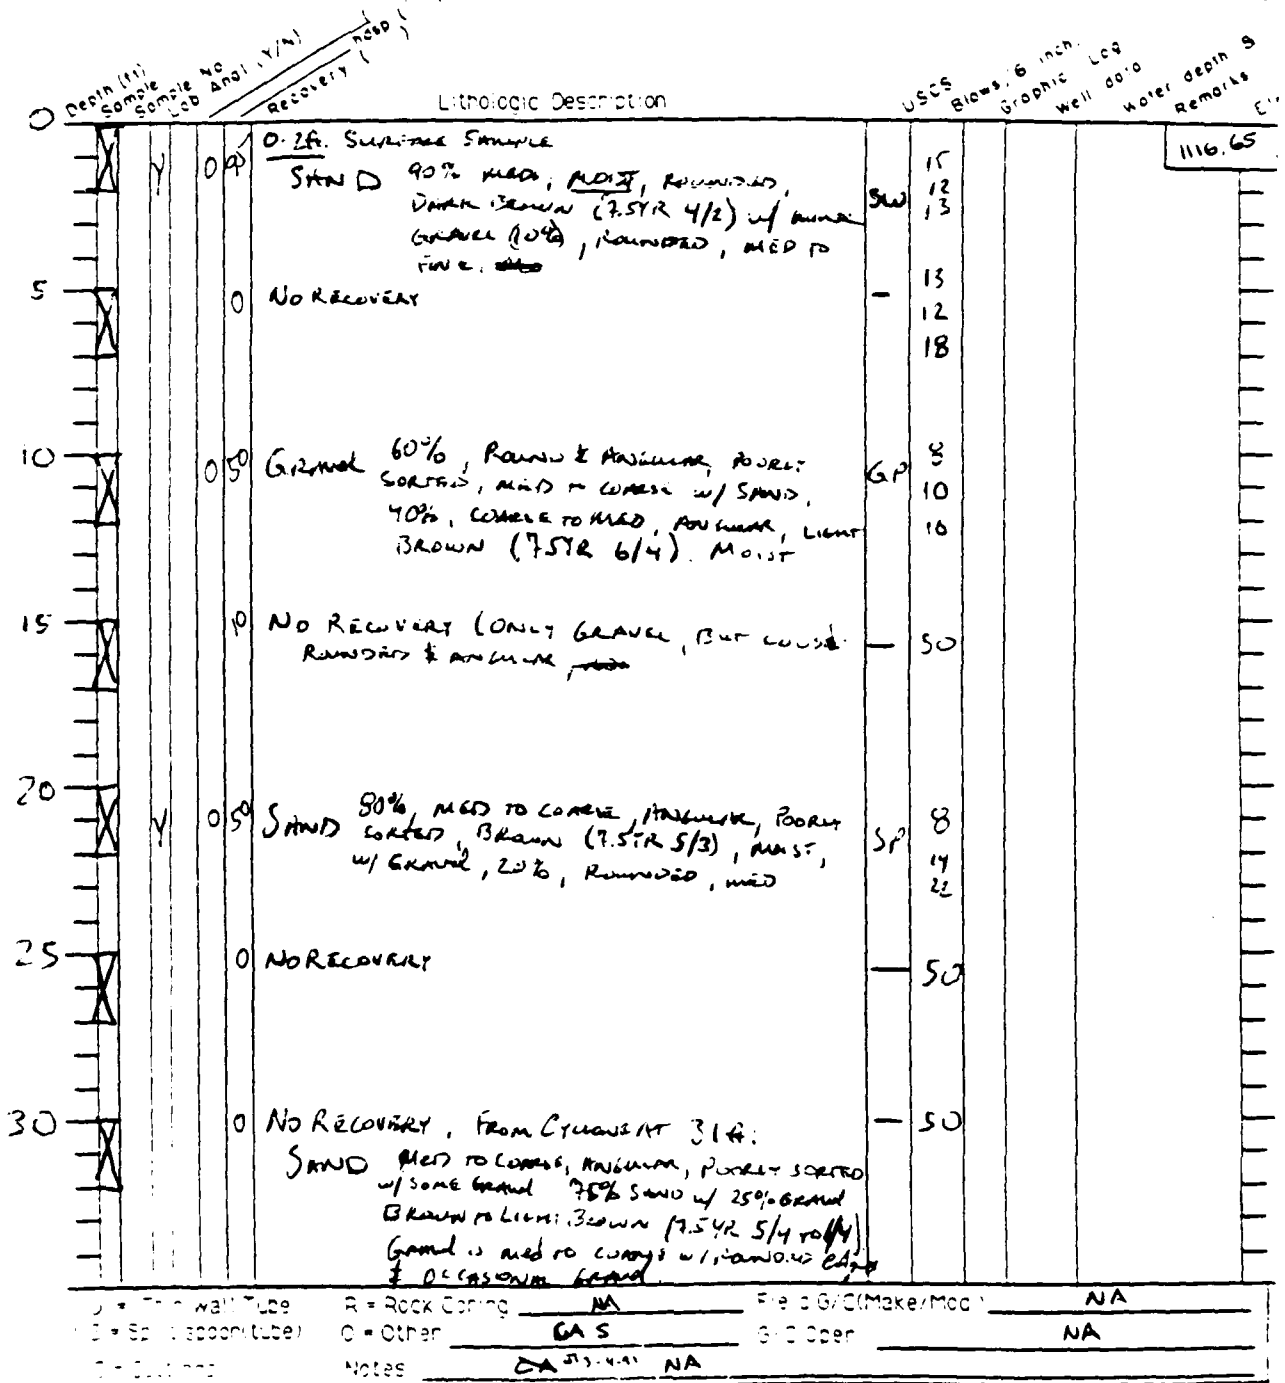 Depth (ft)
Sample
Sample No
Lab Anal. (Y/N)
Recovery ( )
Lithologic Description
USCS
Blows/6 inch.
Graphic Log
Well data
Water depth
Remarks
1116.65
0
0-2ft. SURFACE SAMPLE
Y 0 90 SAND 90% MED, MOIST, ROUNDED, SW 15
DARK BROWN (7.5YR 4/2) w/ MINOR 12
GRAVEL (10%), ROUNDED, MED TO 13
FINE.
5 0 NO RECOVERY – 13
12
18
10 0 50 GRAVEL 60%, ROUND & ANGULAR, POORLY GP 8
SORTED, MED TO COARSE w/ SAND, 10
40%, COARSE TO MED, ANGULAR, LIGHT
BROWN (7.5YR 6/4). MOIST
15 NO RECOVERY (ONLY GRAVEL, BUT LOOSE – 50
ROUNDED & ANGULAR,
20
Y 0 50 SAND 80%, MED TO COARSE, ANGULAR, POORLY SP 8
SORTED, BROWN (7.5YR 5/3), MOIST, 14
w/ GRAVEL, 20%, ROUNDED, MED 22
25 0 NO RECOVERY – 50
30 0 NO RECOVERY, FROM CYCLONE AT 31 ft: – 50
SAND MED TO COARSE, ANGULAR, POORLY SORTED
w/ SOME GRAVEL 75% SAND w/ 25% GRAVEL
BROWN TO LIGHT BROWN (7.5YR 5/4 TO 6/4)
GRAVEL is MED TO COARSE w/ ROUNDED
& OCCASIONAL GRAVEL.
Thin Wall Tube R = Rock Coring NA Field G/C(Make/Mod) NA
Split spoon(tube) O = Other GAS G/C Oper NA
Notes NA